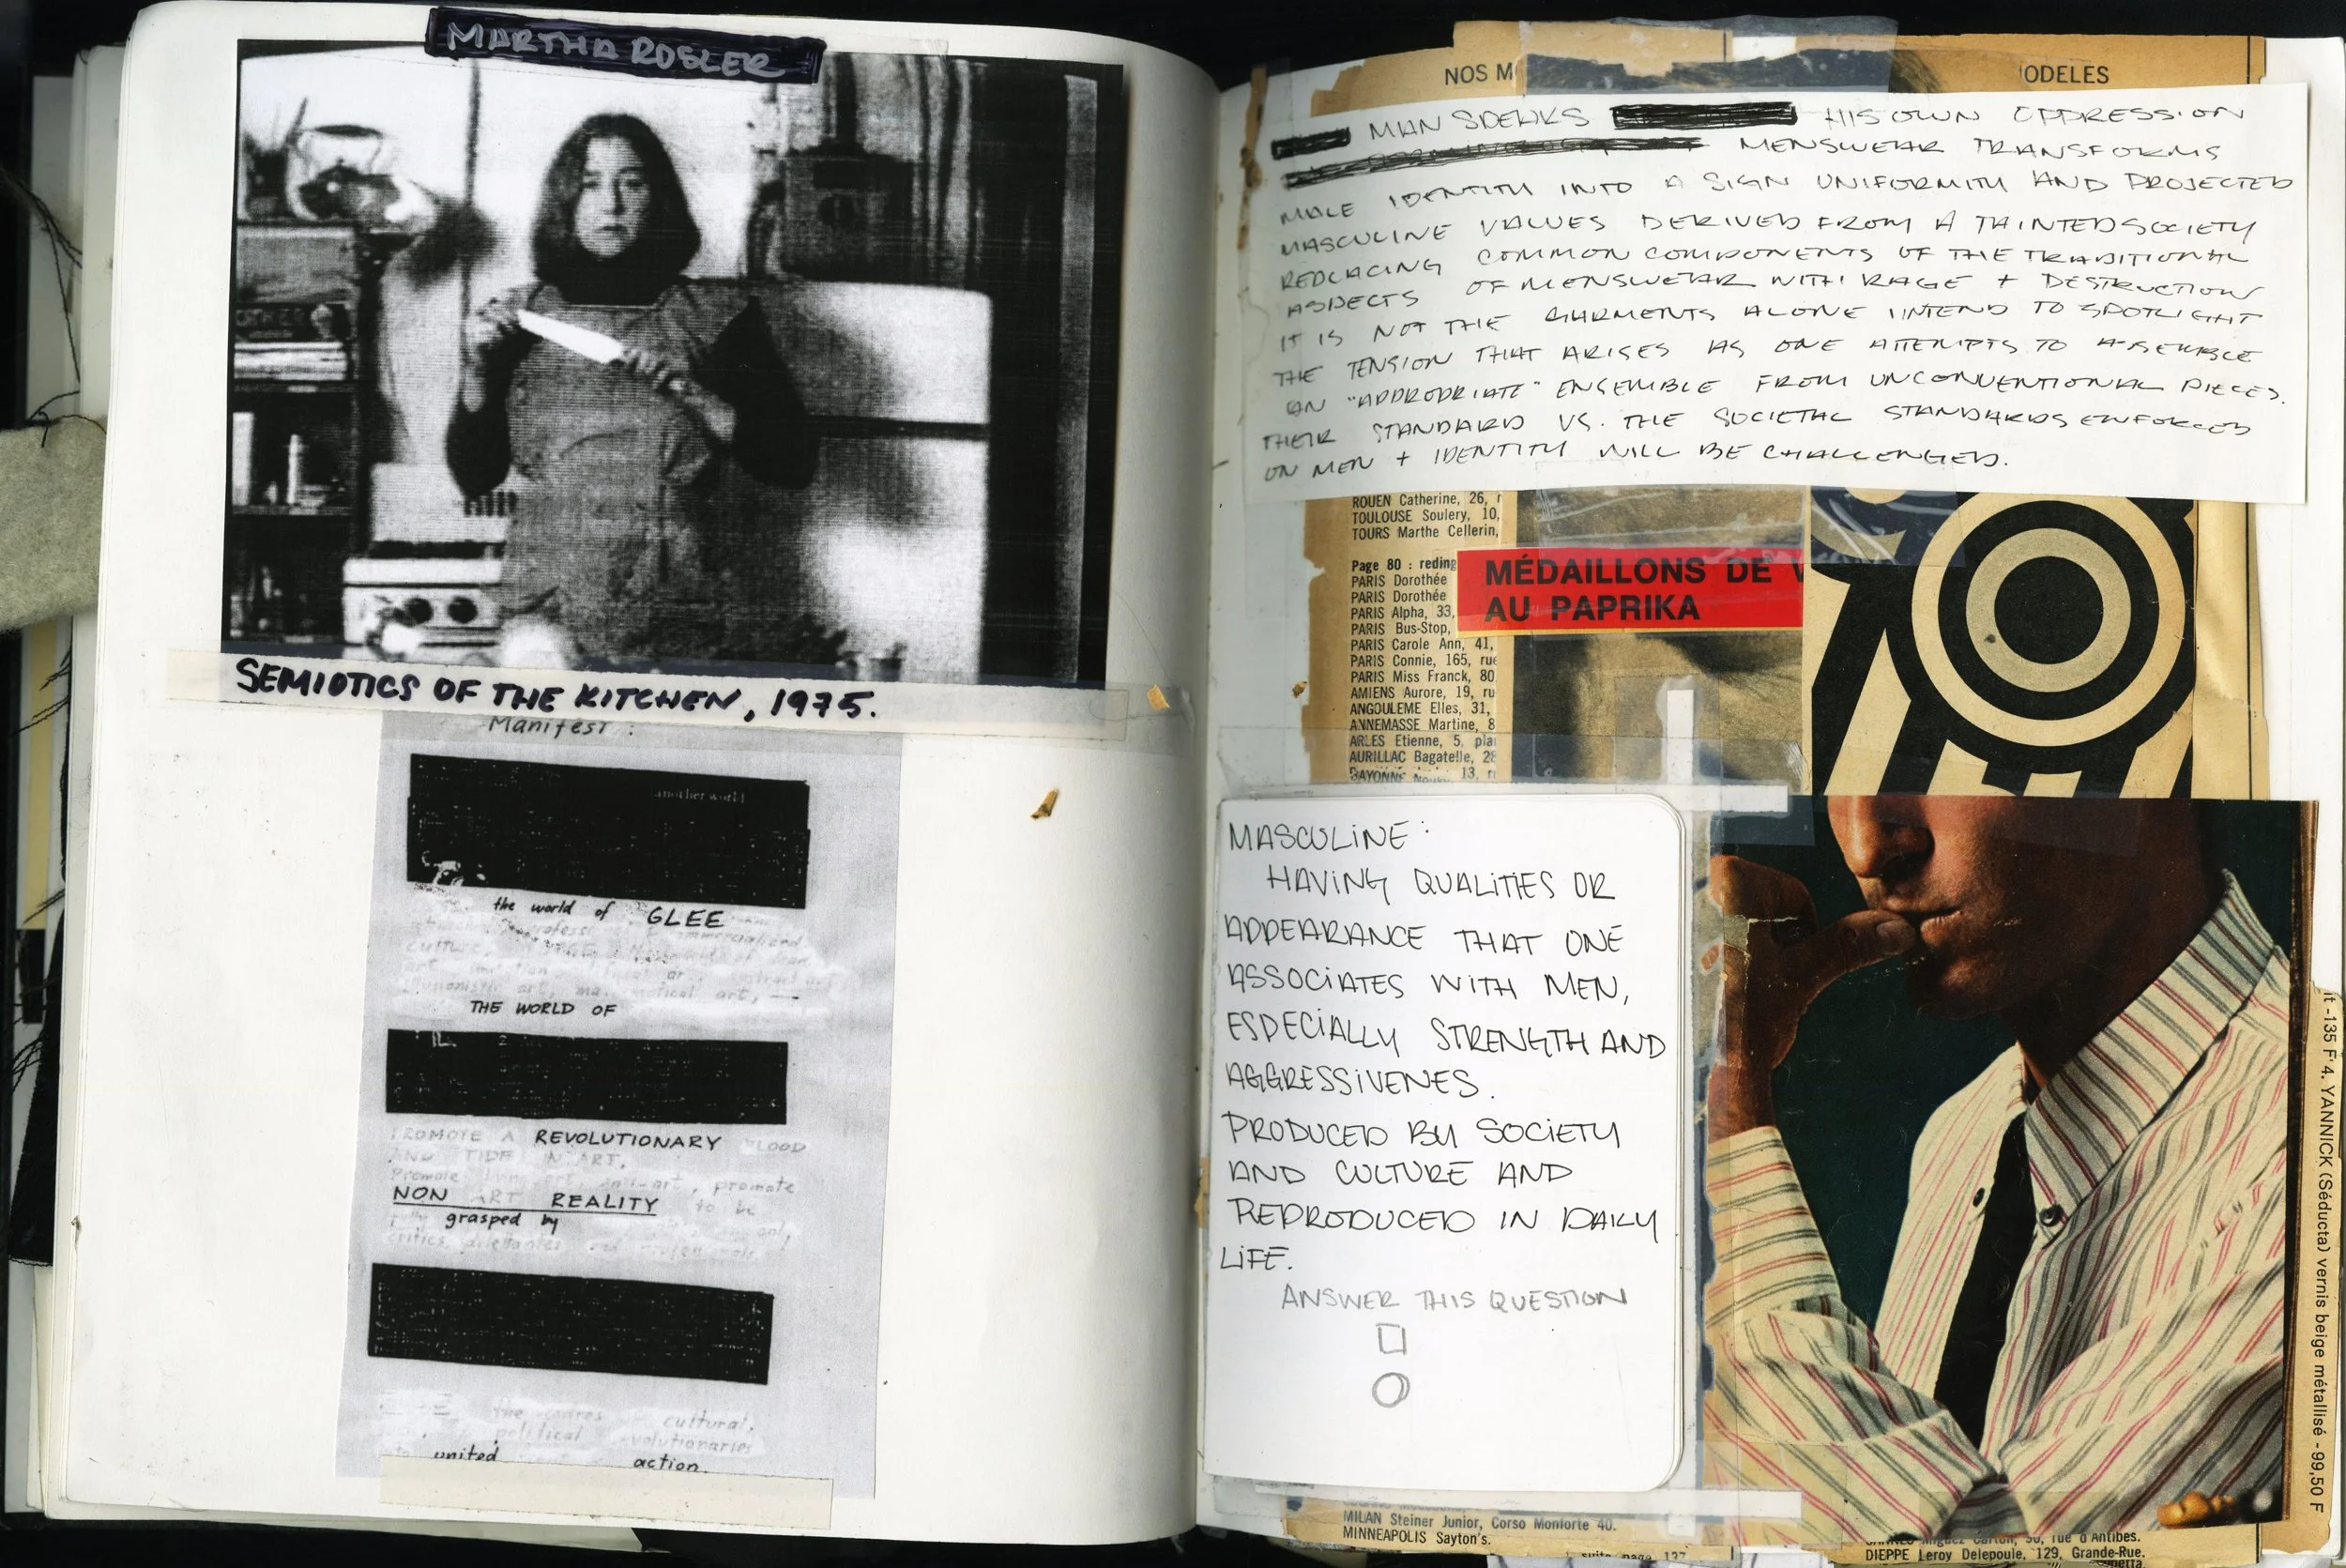 MARTHA ROSLER
OTHER
SEMIOTICS OF THE KITCHEN, 1975.
Manifest :
another world
the world of GLEE
THE WORLD OF
PROMOTE A REVOLUTIONARY FLOOD
AND TIDE IN ART.
Promote art, promote
NON ART REALITY to be
grasped by
critics, dilettantes and
the cadres cultural,
political
united action.
NOS M ODELES
MAN SPEAKS HIS OWN OPPRESSION
MENSWEAR TRANSFORMS
MALE IDENTITY INTO A SIGN UNIFORMITY AND PROJECTED
MASCULINE VALUES DERIVED FROM A TAINTED SOCIETY
REPLACING COMMON COMPONENTS OF THE TRADITIONAL
ASPECTS OF MENSWEAR WITH RAGE + DESTRUCTION
IT IS NOT THE GARMENTS ALONE I INTEND TO SPOTLIGHT
THE TENSION THAT ARISES AS ONE ATTEMPTS TO ASSEMBLE
AN "APPROPRIATE" ENSEMBLE FROM UNCONVENTIONAL PIECES.
THEIR STANDARD VS. THE SOCIETAL STANDARDS ENFORCED
ON MEN + IDENTITY WILL BE CHALLENGED.
ROUEN Catherine, 26, r
TOULOUSE Soulery, 10,
TOURS Marthe Cellerin,
Page 80 : reding
PARIS Dorothée
PARIS Dorothée
PARIS Alpha, 33,
PARIS Bus-Stop,
PARIS Carole Ann, 41,
PARIS Connie, 165, rue
PARIS Miss Franck, 80
AMIENS Aurore, 19, ru
ANGOULEME Elles, 31,
ANNEMASSE Martine, 8
ARLES Etienne, 5, pla
AURILLAC Bagatelle, 28
BAYONNE 13, r
MÉDAILLONS DE V
AU PAPRIKA
MASCULINE:
HAVING QUALITIES OR
APPEARANCE THAT ONE
ASSOCIATES WITH MEN,
ESPECIALLY STRENGTH AND
AGGRESSIVENES.
PRODUCED BY SOCIETY
AND CULTURE AND
REPRODUCED IN DAILY
LIFE.
ANSWER THIS QUESTION
it -135 F. 4. YANNICK (Séducta) vernis beige métallisé - 99,50 F
MILAN Steiner Junior, Corso Monforte 40.
MINNEAPOLIS Sayton's.
suite page 137
rue d'Antibes.
DIEPPE Leroy Delepoule, 129, Grande-Rue.